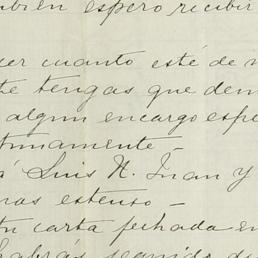 mbien espero recibir
cer cuanto esté de m
te tengas que dem
algun encargo espe
tunamente—
á Luis N. Juan y
mas estenso—
tu carta fechada en
habrás seguido de